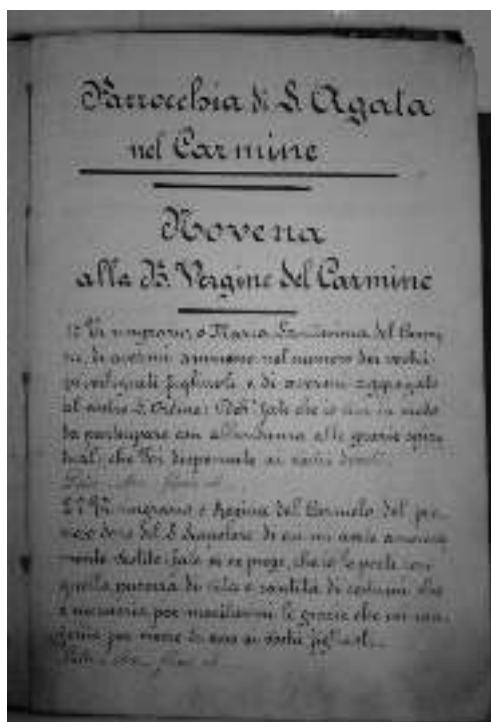 Parrocchia di S. Agata
nel Carmine
Novena
alla B. Vergine del Carmine
1º Vi ringrazio, o Maria Santissima del Carmi-
ne, di avermi ammesso nel numero dei vostri
privilegiati figliuoli e di avermi aggregato
al vostro S. Ordine: Deh! fate che io sia in modo
da partecipare con abbondanza alle grazie spiri-
tuali che Voi dispensate ai vostri devoti.
Pater, Ave, Gloria
2º Vi ringrazio o Regina del Carmelo del pre-
zioso dono del S. Scapolare di cui mi avete
mente vestito: fate ve ne prego, che io lo porti con
quella purezza di vita e santità di costumi che
è necessaria per meritarmi le grazie che
per mezzo di esso ai vostri figliuoli.
Pater, Ave, Gloria